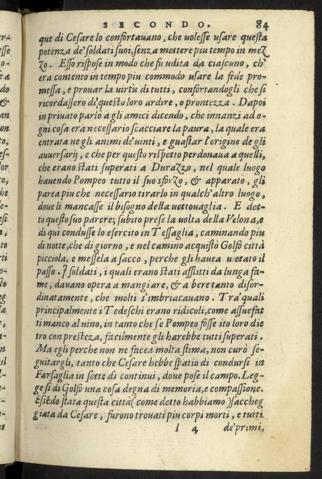 SECONDO. 84
que di Cesare lo confortauano, che uolesse usare questa
potenza de' soldati suoi, senza mettere piu tempo in mez
zo. Esso rispose in modo che fu udita da ciascuno, ch'
era contento in tempo piu commodo usare la fede pro-
messa, e prouar la uirtù di tutti, confortandogli che si
ricordassero di questo loro ardire, o prontezza. Dapoi
in priuato parlò a gli amici dicendo, che innanzi ad o-
gni cosa era necessario scacciare la paura, la quale era
entrata ne gli animi de' uinti, e guastar l'origine de gli
auuersarij, e che per questo rispetto perdonaua a quelli,
che erano stati superati a Durazzo, nel quale luogo
hauendo Pompeo tutto il suo sforzo, & apparato, gli
parea piu che necessario tirarlo in qualch' altro luogo,
doue li mancasse il bisogno della uettouaglia. E det-
to questo suo parere, subito prese la uolta della Velona, e
di qui condusse lo esercito in Tessaglia, caminando piu
di notte, che di giorno, e nel camino acquistò Golfi città
picciola, e messela a sacco, perche gli hauea uetato il
passo. I soldati, i quali erano stati afflitti da lunga fa-
me, dauano opera a mangiare, & a bere tanto disor-
dinatamente, che molti s'imbriacauano. Tra' quali
principalmente i Tedeschi erano ridicoli, come assuefat
ti manco al uino, in tanto che se Pompeo fosse ito loro die
tro con prestezza, facilmente gli harebbe tutti superati.
Ma egli perche non ne facea molta stima, non curò se-
guitargli, tanto che Cesare hebbe spatio di condursi in
Farsaglia in sette dì continui, doue pose il campo. Leg-
gesi di Golfi una cosa degna di memoria, e compassione.
essēdo stata questa città (come detto habbiamo) saccheg
giata da Cesare, furono trouati piu corpi morti, e tutti
l 4 de' primi,